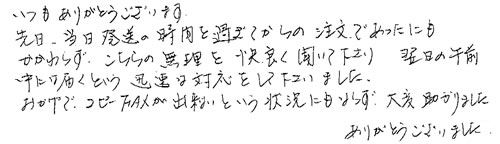 いつもありがとうございます。
先日、当日発送の時間を過ぎてからの注文であったにも
かかわらず、こちらの無理を快良く聞いて下さり 翌日の午前
中に届くという迅速な対応をして下さいました。
おかげで、コピーFAXが出来ないという状況にもならず、大変助かりました
ありがとうございました。